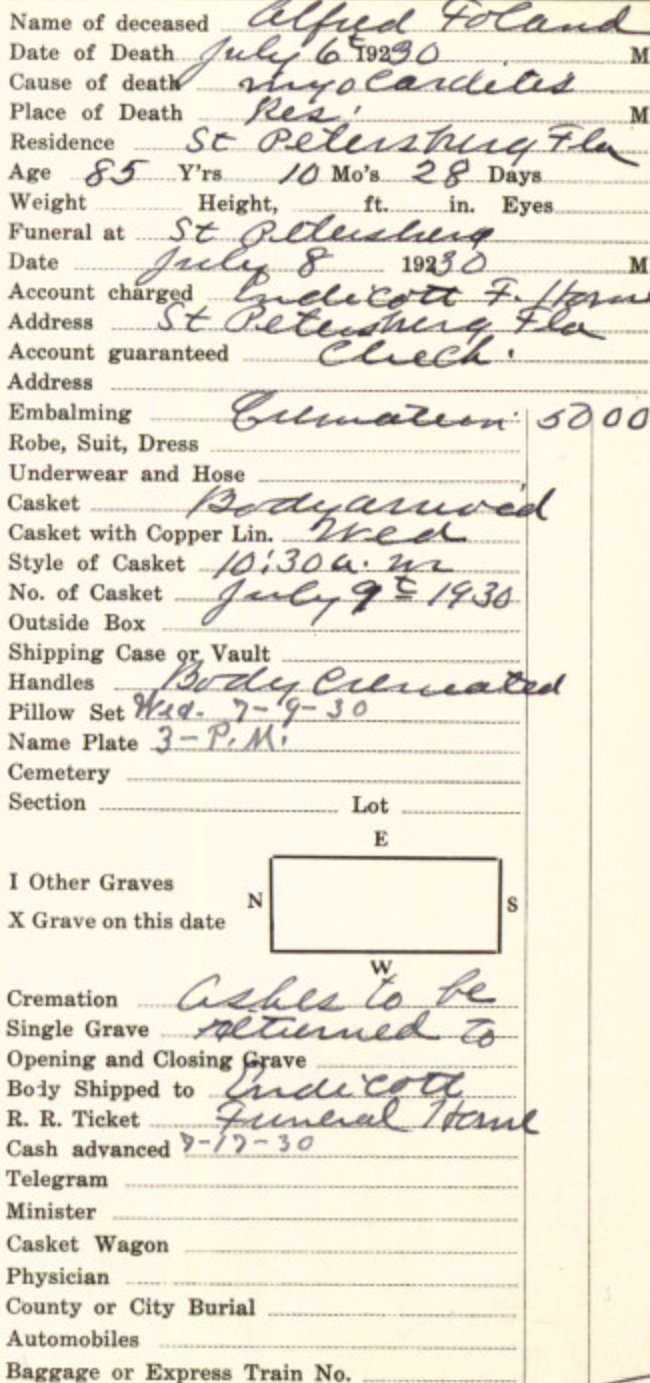 Name of deceased Alfred Foland
Date of Death July 6th 19230 M
Cause of death myocardites
Place of Death Res. M
Residence St Petersburg Fla
Age 85 Y'rs 10 Mo's 28 Days
Weight Height, ft. in. Eyes
Funeral at St Petersburg
Date July 8 19230 M
Account charged Endicott F. Home
Address St Petersburg Fla
Account guaranteed Check.
Address
Embalming Cremation 50 00
Robe, Suit, Dress
Underwear and Hose
Casket Body arrived
Casket with Copper Lin. Wed
Style of Casket 10:30 a. m
No. of Casket July 9th 1930
Outside Box
Shipping Case or Vault
Handles Body Cremated
Pillow Set Wed. 7-9-30
Name Plate 3-P.M.
Cemetery
Section Lot
E
I Other Graves
N S
X Grave on this date
W
Cremation Ashes to be
Single Grave returned to
Opening and Closing Grave
Body Shipped to Endicott
R. R. Ticket Funeral Home
Cash advanced 7-17-30
Telegram
Minister
Casket Wagon
Physician
County or City Burial
Automobiles
Baggage or Express Train No.